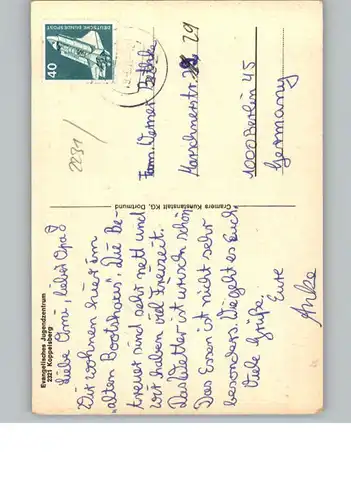 Evangelisches Jugendzentrum
2321 Koppelsberg
Liebe Omi, lieber Opa!
Wir wohnen hier im
„alten Bootshaus“. Die Be-
treuer sind sehr nett und
wir haben viel Freizeit.
Das Wetter ist wirklich schön
Das Essen ist nicht sehr
besonders. Wie geht es Euch
Viele Grüße
Eure
Anke
Cramers Kunstanstalt KG, Dortmund
DEUTSCHE BUNDESPOST
40
2231/
Fam. Werner
Marschnerstr. 29
1000 Berlin 45
Germany